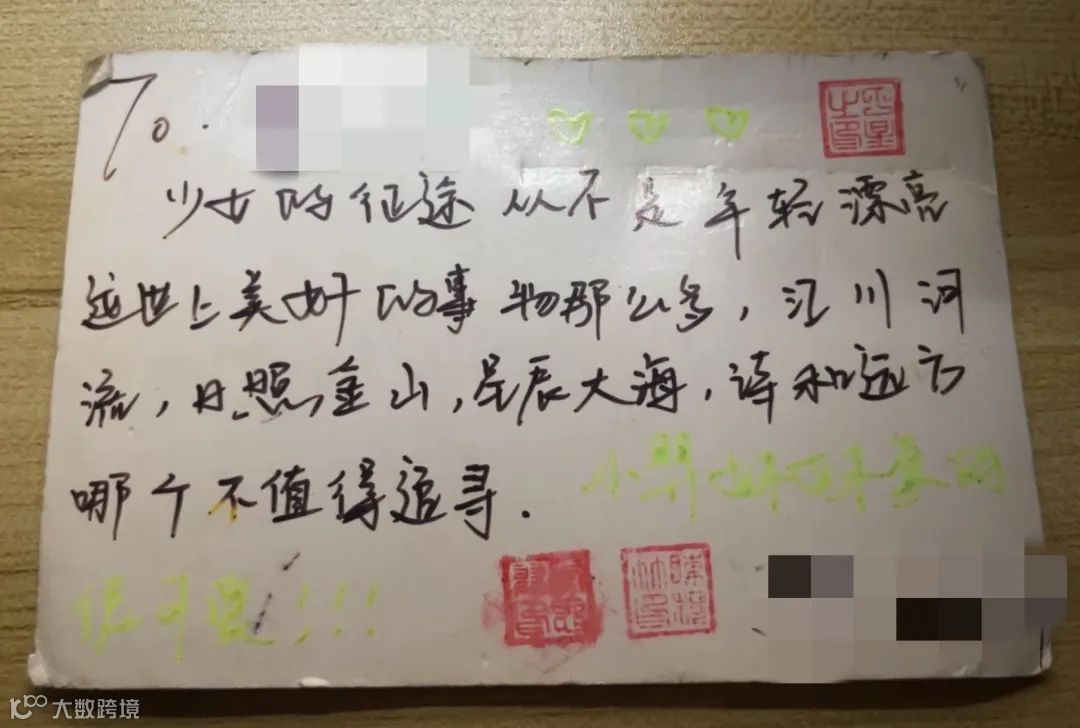 To.
少女的征途从不是年轻漂亮
这世上美好的事物那么多，江川河
流，日照金山，星辰大海，诗和远方
哪个不值得追寻.
很可爱！！！
大数跨境